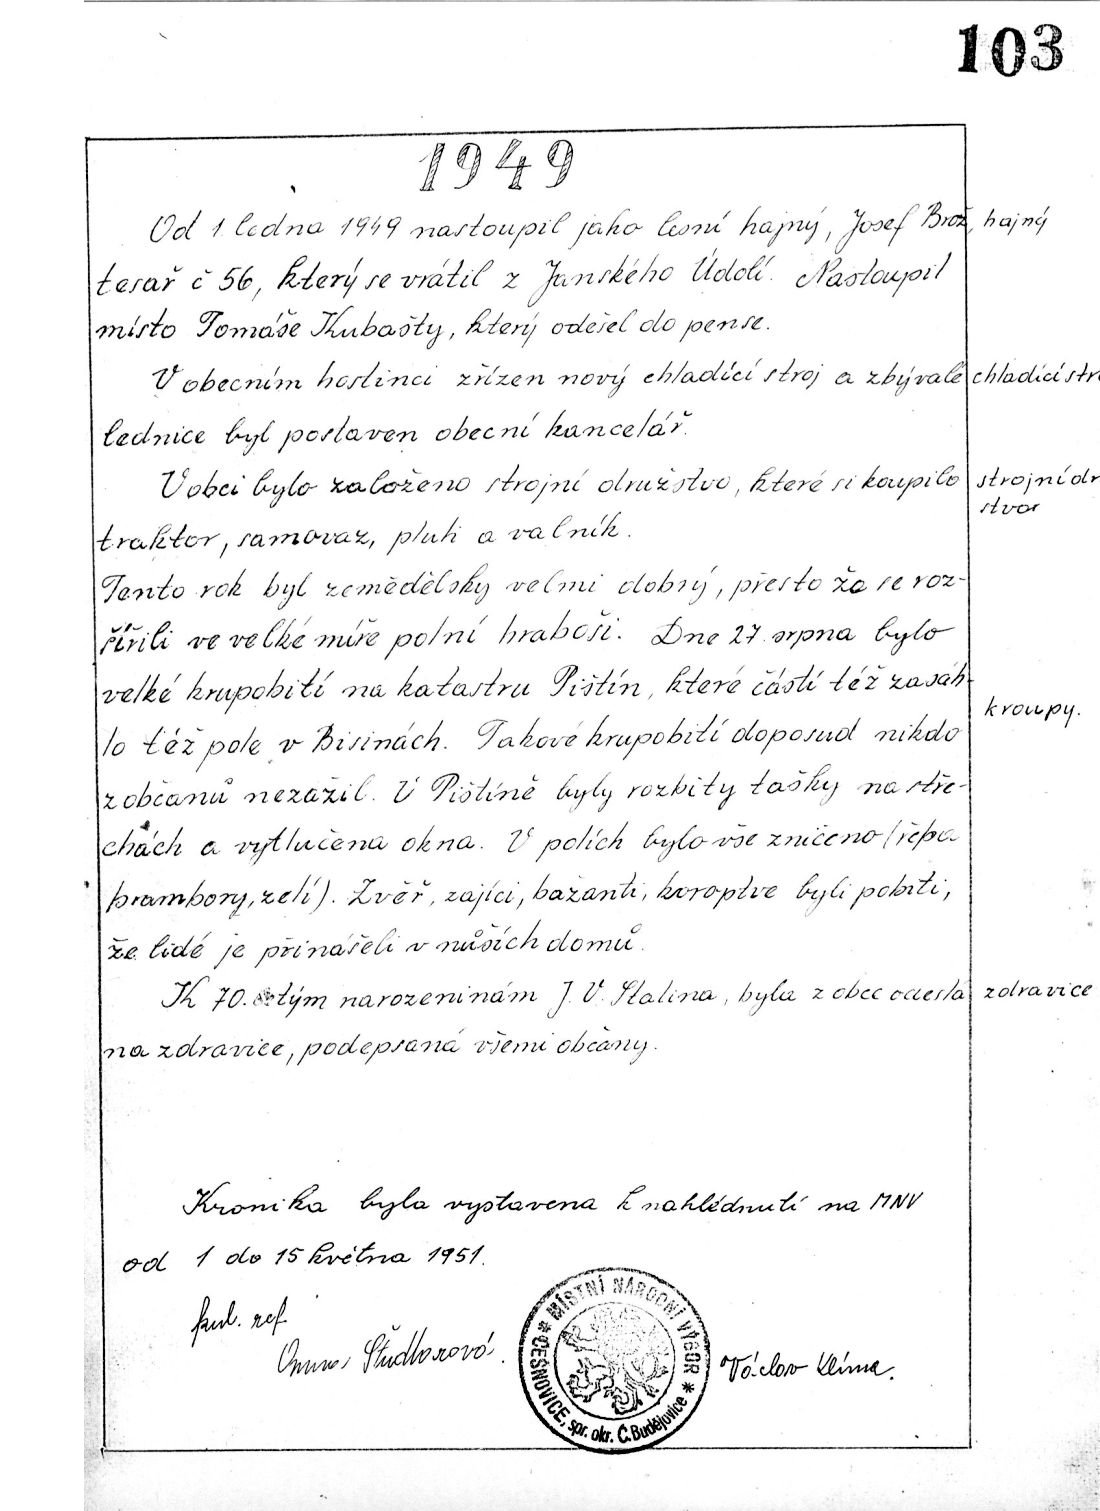 103
1949
Od 1 ledna 1949 nastoupil jako lesní hajný, Josef Brož, hajný
tesař č 56, který se vrátil z Janského Údolí. Nastoupil
místo Tomáše Kubašty, který odešel do pense.
V obecním hostinci zřízen nový chladící stroj a zbývalé chladící str
lednice byl postaven obecní kancelář.
V obci bylo založeno strojní družstvo, které si koupilo strojní dr
stvo
traktor, samovaz, pluh a valník.
Tento rok byl zemědělsky velmi dobrý, přesto že se roz-
šířili ve velké míře polní hraboši. Dne 27. srpna bylo
velké krupobití na katastru Pištín, které částí též zasáh-
kroupy.
lo též pole v Bisinách. Takové krupobití doposud nikdo
z občanů nezažil. V Pištíně byly rozbity tašky na stře-
chách a vytlučena okna. V polích bylo vše zničeno (řepa
brambory, zelí). Zvěř, zajíci, bažanti, koroptve byli pobiti,
že lidé je přinášeli v nůších domů.
K 70. tým narozeninám J. V. Stalina, byla z obce odesla zdravice
na zdravice, podepsaná všemi občany.
Kronika byla vystavena k nahlédnutí na MNV
od 1 do 15 května 1951.
kul. ref.
Študlarová.
Václav Klíma.
MÍSTNÍ NÁRODNÍ VÝBOR
ČESNOVICE, spr. okr. Č. Budějovice